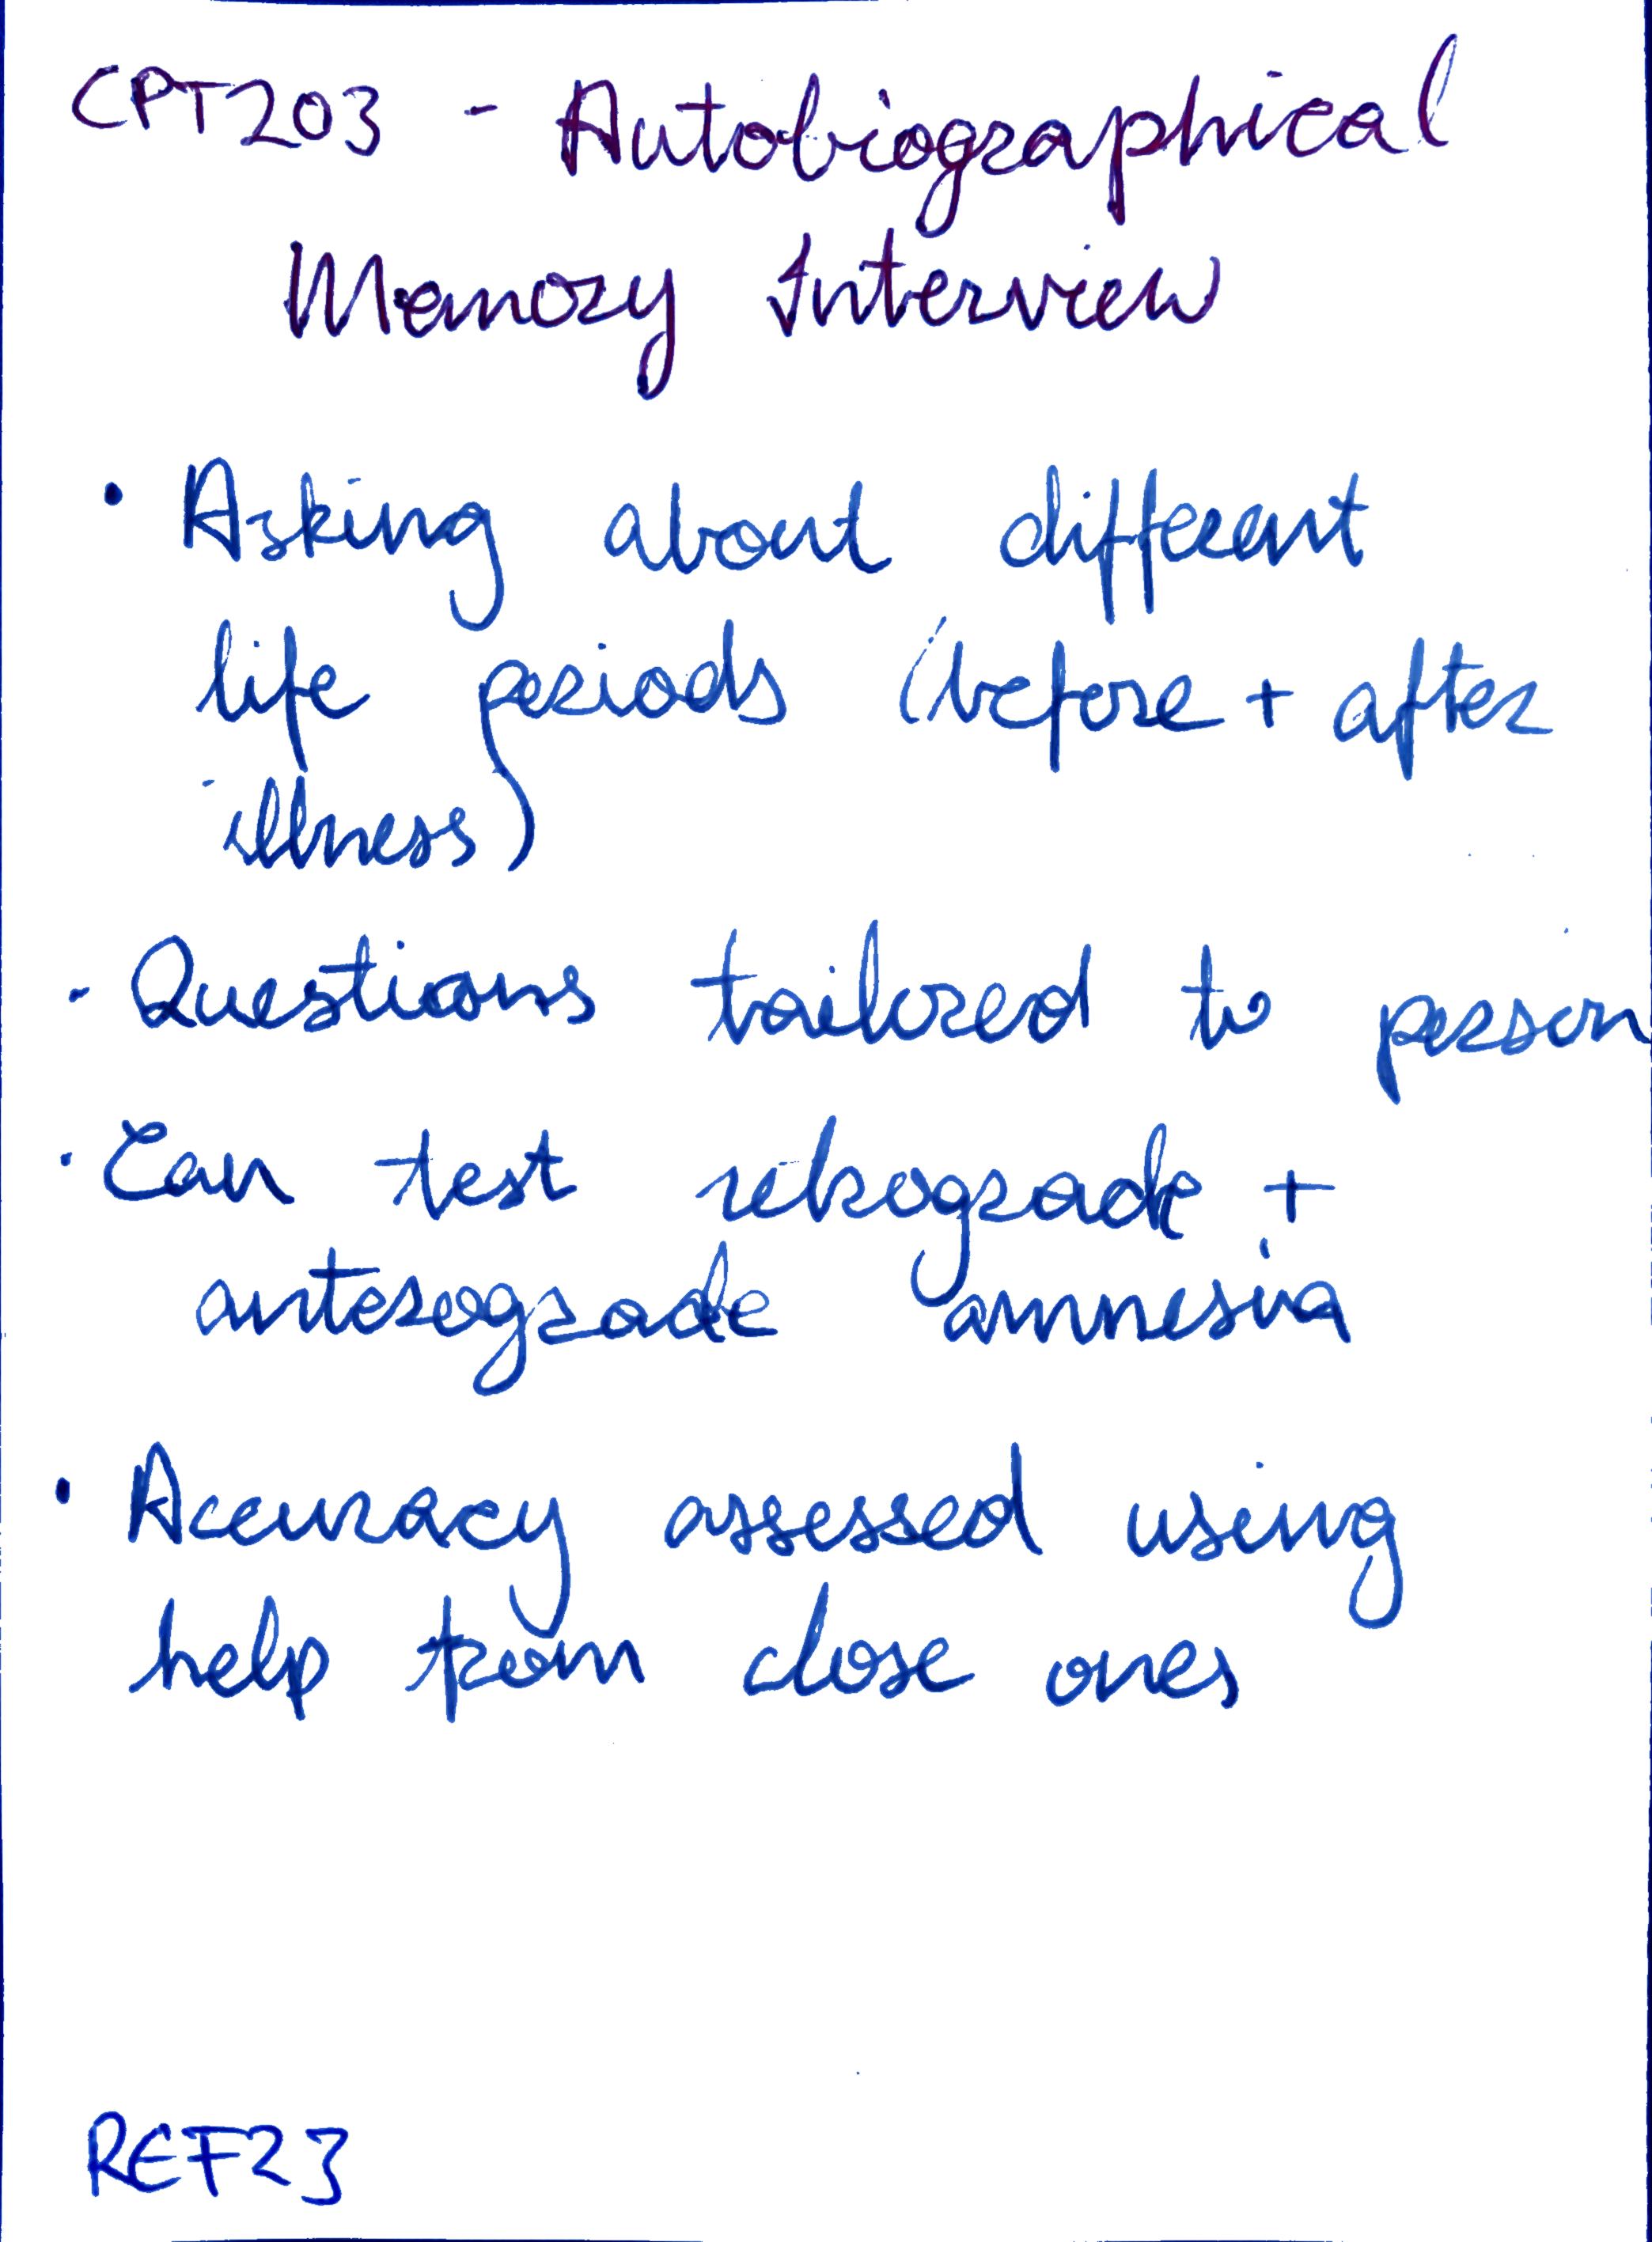 CPT203 - Autobiographical
Memory Interview
• Asking about different
life periods (before + after
illness)
- Questions tailored to person
• Can test retrograde +
anterograde amnesia
• Accuracy assessed using
help from close ones
REF23